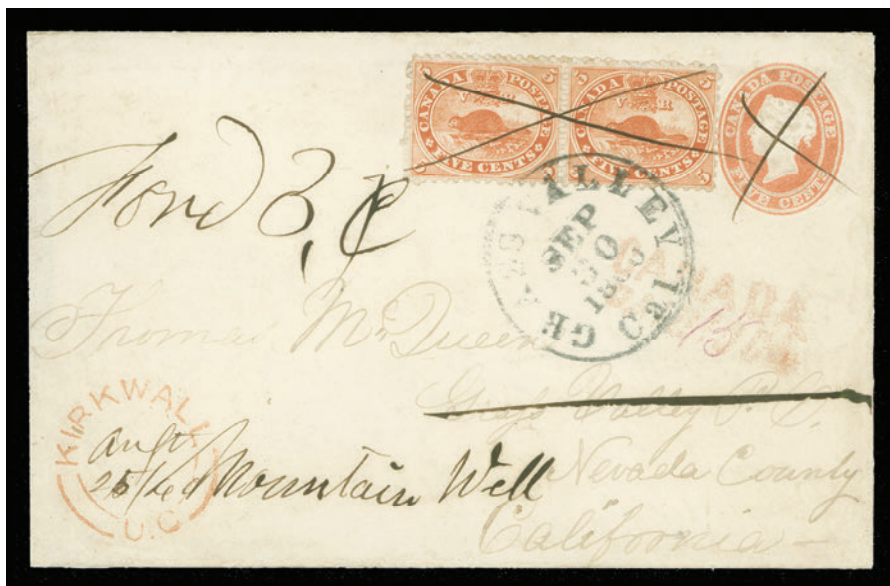 5 CANADA POSTAGE 5
V R
5 FIVE CENTS 5
5 CANADA POSTAGE 5
V R
5 FIVE CENTS 5
CANADA POSTAGE
FIVE CENTS
Ford 3
VALLEY
SEP
30
Cal.
CANADA
15
Thomas McQueen
Grass Valley P.O.
Nevada County
California
KIRKWALL
U.C.
Augt
25/60
Mountain Well